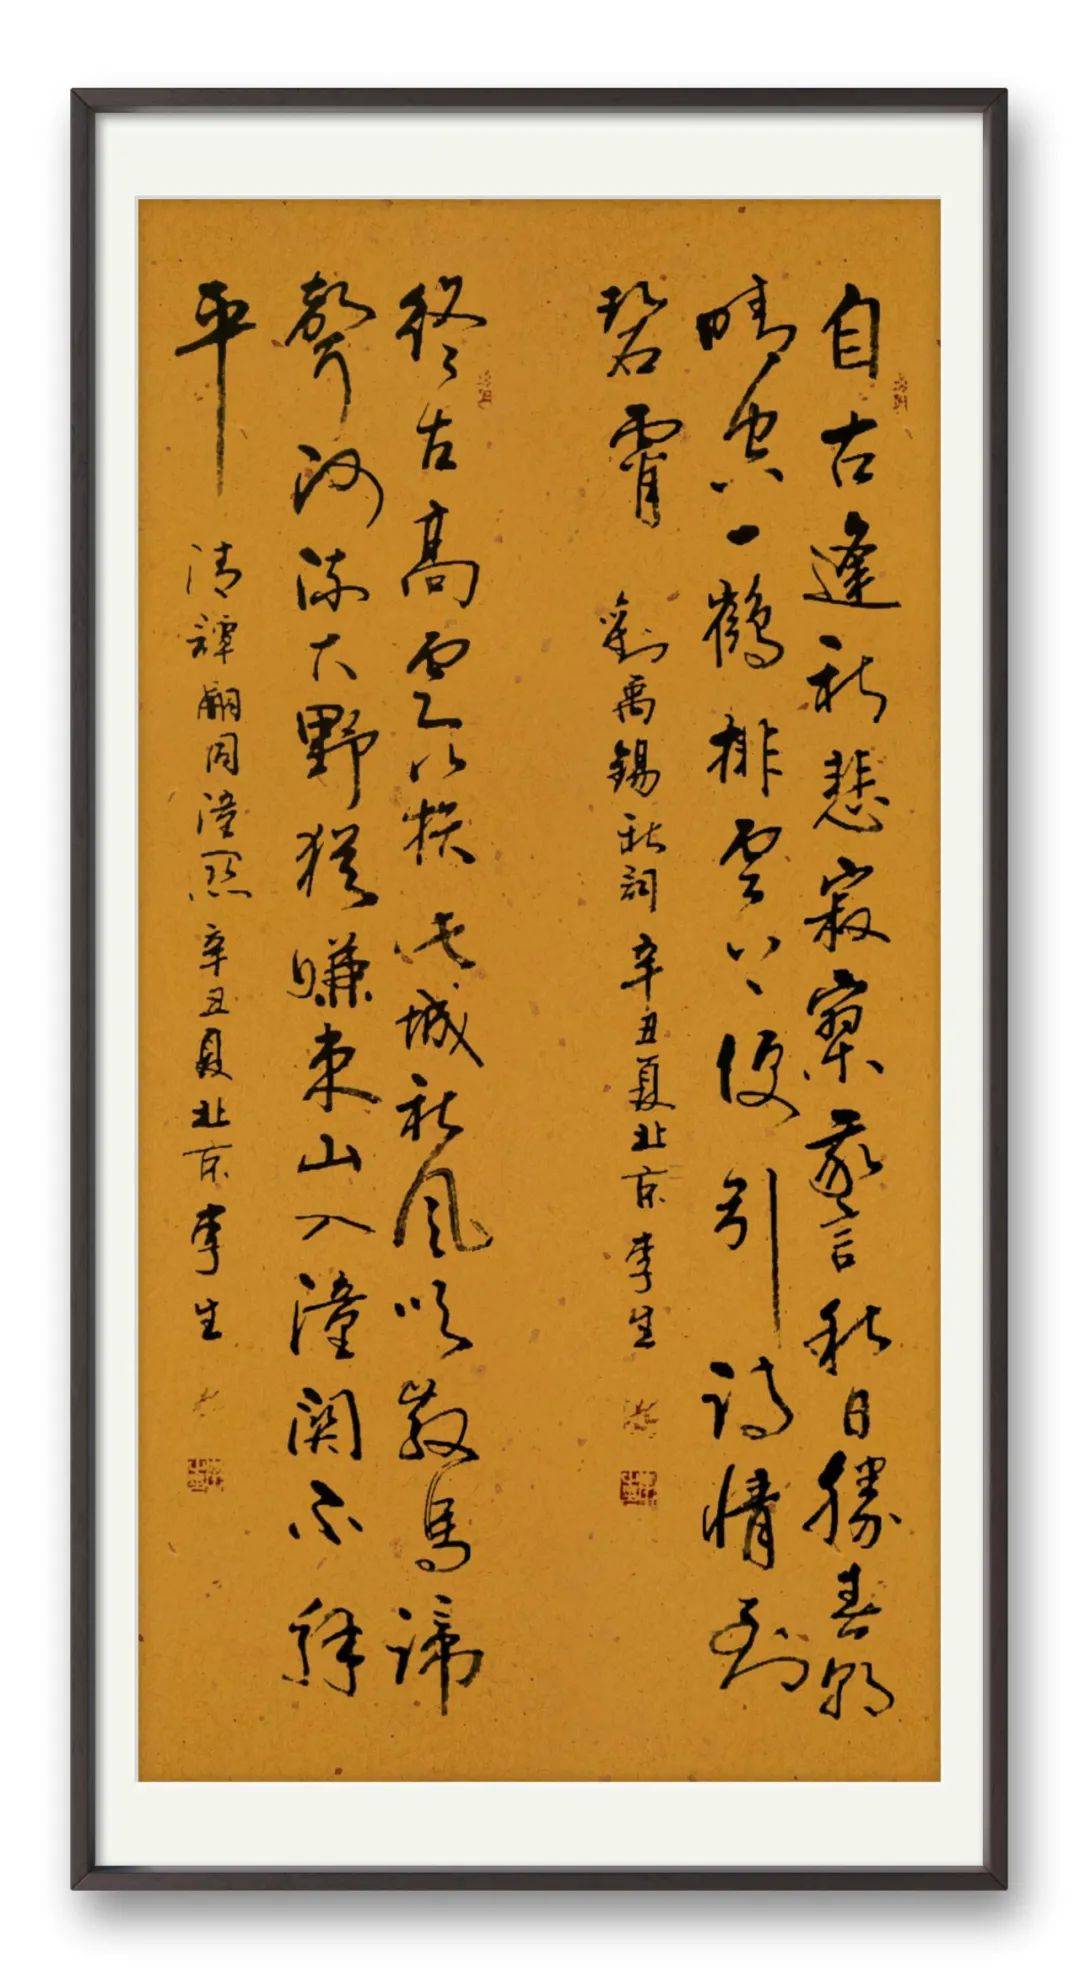 自古逢秋悲寂寥我言秋日勝春朝
晴空一鶴排雲上便引詩情到
碧霄 劉禹錫秋詞 辛丑夏北京李生
終古高雲簇此城秋風吹散馬蹄
聲河流大野猶嫌束山入潼關不解
平 清譚嗣同潼關 辛丑夏北京李生